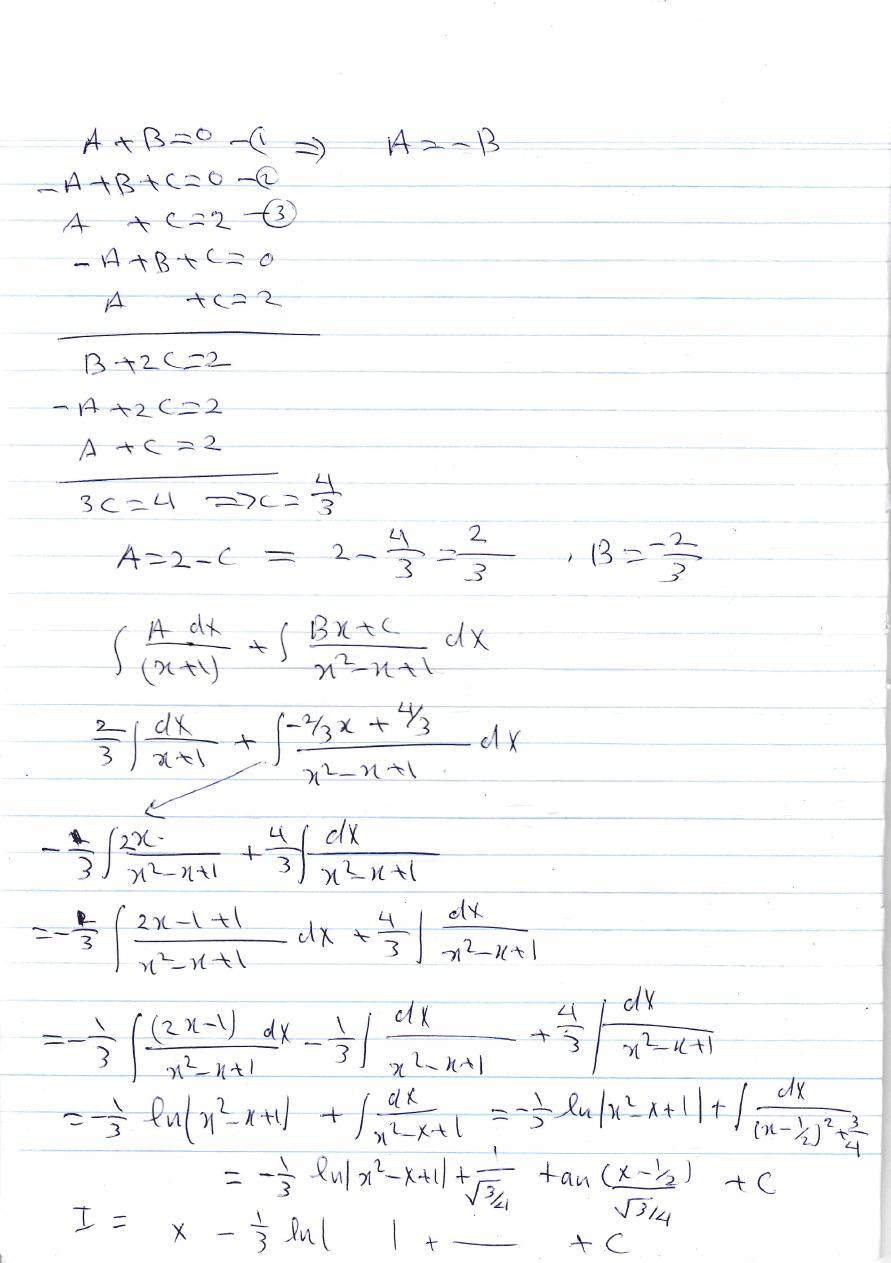 A + B = 0 —① ⇒ A = −B
−A + B + C = 0 —②
A + C = 2 —③
−A + B + C = 0
A + C = 2
B + 2C = 2
−A + 2C = 2
A + C = 2
3C = 4 ⇒ C = 4/3
A = 2 − C = 2 − 4/3 = 2/3 , B = −2/3
∫ A dx/(x+1) + ∫ (Bx + C)/(x² − x + 1) dx
2/3 ∫ dx/(x+1) + ∫ (−2/3 x + 4/3)/(x² − x + 1) dx
−1/3 ∫ 2x/(x² − x + 1) + 4/3 ∫ dx/(x² − x + 1)
= −1/3 ∫ (2x − 1 + 1)/(x² − x + 1) dx + 4/3 ∫ dx/(x² − x + 1)
= −1/3 ∫ (2x − 1) dx/(x² − x + 1) − 1/3 ∫ dx/(x² − x + 1) + 4/3 ∫ dx/(x² − x + 1)
= −1/3 ln|x² − x + 1| + ∫ dx/(x² − x + 1) = −1/3 ln|x² − x + 1| + ∫ dx/((x − 1/2)² + 3/4)
= −1/3 ln|x² − x + 1| + 1/√(3/4) tan (x − 1/2)/√(3/4) + C
I = x − 1/3 ln| | + — + C